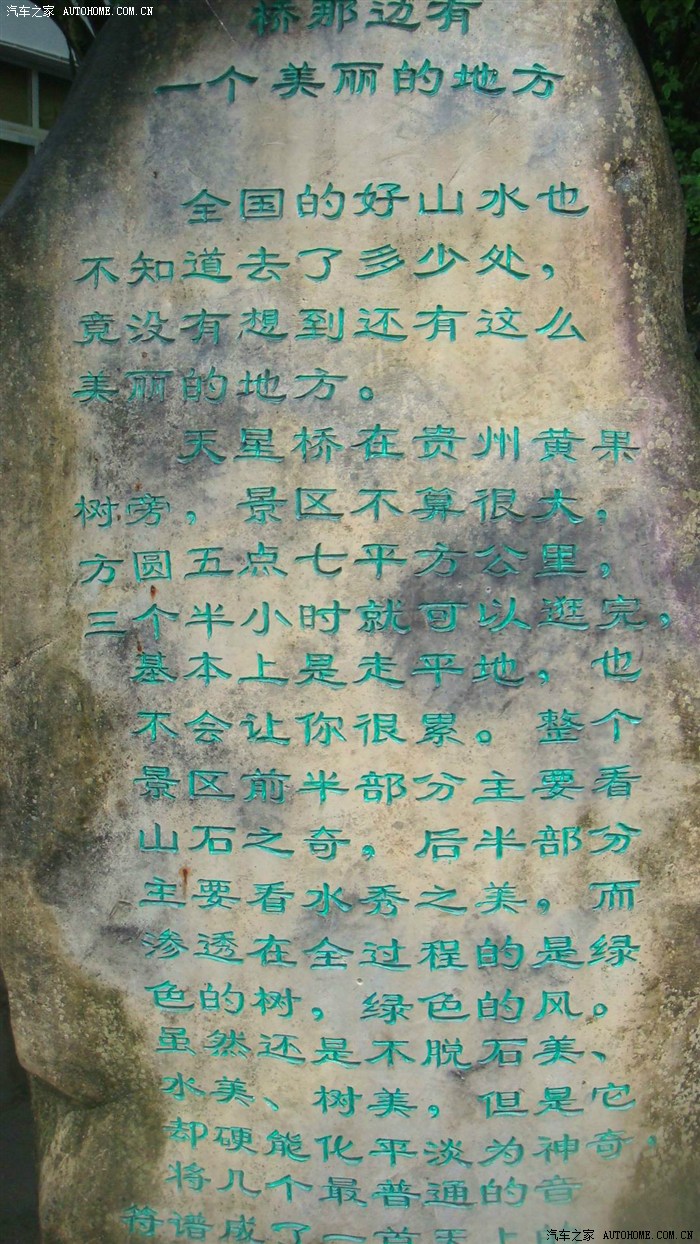 汽车之家 AUTOHOME.COM.CN
桥那边有
一个美丽的地方
全国的好山水也
不知道去了多少处，
竟没有想到还有这么
美丽的地方。
天星桥在贵州黄果
树旁，景区不算很大，
方圆五点七平方公里，
三个半小时就可以逛完，
基本上是走平地，也
不会让你很累。整个
景区前半部分主要看
山石之奇，后半部分
主要看水秀之美，而
渗透在全过程的是绿
色的树，绿色的风。
虽然还是不脱石美、
水美、树美，但是它
却硬能化平淡为神奇，
将几个最普通的音
符谱成了一首天上的
汽车之家 AUTOHOME.COM.CN